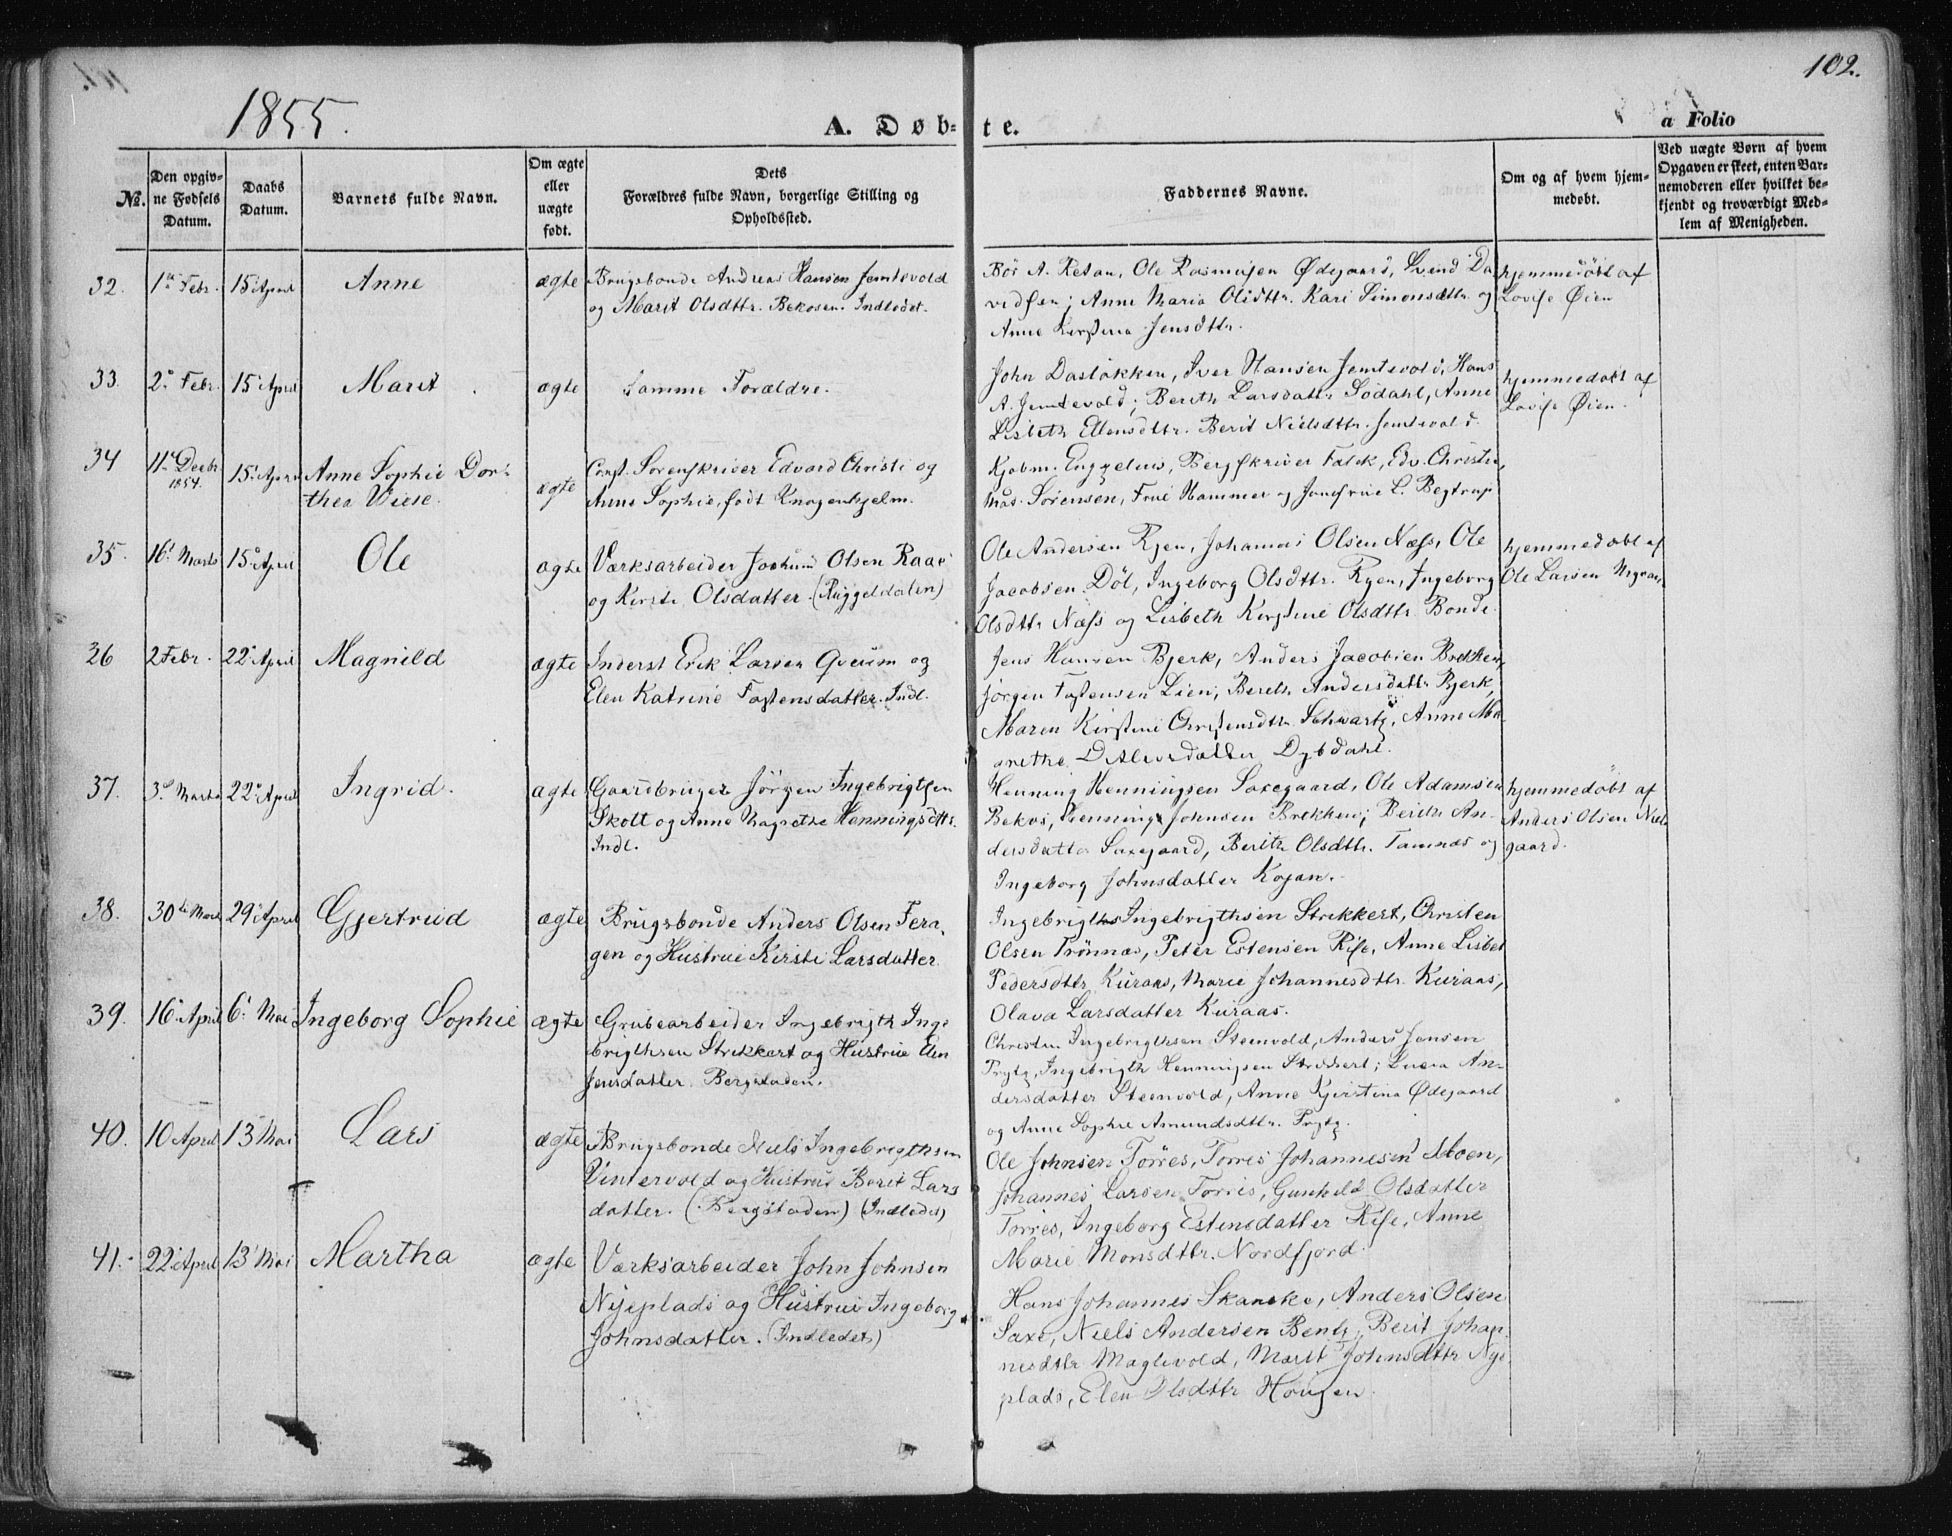 102.
1855.
A. Døb-te.
a Folio
No.
Den opgiv-
ne Fødsels
Datum.
Daabs
Datum.
Barnets fulde Navn.
Om ægte
eller
uægte
født.
Dets
Forældres fulde Navn, borgerlige Stilling og
Opholdssted.
Faddernes Navne.
Om og af hvem hjem-
medøbt.
Ved uægte Børn af hvem
Opgaven er skeet, enten Bar-
nemoderen eller hvilket be-
kjendt og troværdigt Med-
lem af Menigheden.
32. 1ste Febr. 15 April Anne ægte
Brugsbonde Andreas Hansen Jemtevold
og Marit Olsdttr. Bekosen. Indledet.
A. Retan, Ole Rasmusen Ødegaard, Svend Da
vidsen; Anne Maria Olsdttr. Kari Simonsdttr. og
Anne Kirstina Jensdttr.
hjemmedøbt af
Lovise Øien
33. 2. Febr. 15 April Marit ægte
Samme Forældre.
John Dasløkken, Iver Hansen Jemtevold, Hans
A. Jemtevold; Berith Larsdatter Sødahl, Anne
Lisbeth Ellensdttr. Berit Nielsdttr. Jemtevold.
hjemmedøbt af
Lovise Øien.
34 11te Decbr. 1854. 15 April Anne Sophie Dor-
thea Wiese. ægte
Const. Sorenskriver Edvard Christie og
Anne Sophie, født Knagenhjelm.
Kjøbm. Engzelius, Bergskriver Falck, Edv. Christie,
Mas. Sørensen, Frue Hammer og Jomfrue L. Begtrup
35. 16. Marts 15 April Ole ægte
Værksarbeider Jochum Olsen Raae
og Kirsti Olsdatter. (Ryggeldalen)
Ole Andersen Ryen, Johannes Olsen Næss, Ole
Jacobsen Döl, Ingeborg Olsdttr. Ryen, Ingeborg
Olsdttr Næss og Lisbeth Kirstine Olsdttr. Bonde.
hjemmedøbt af
Ole Larsen
36 2 Febr. 22 April Magnild ægte
Inderst Erik Larsen Qveum og
Elen Katrine Fastensdatter. Indl.
Jens Hansen Bjerk, Anders Jacobsen Brekken,
Jørgen Fastensen Lien; Bereth Andersdattr Bjerk,
Maren Kirstine Christensdttr Schwartz, Anne Ma-
grethe Ditlevsdatter Dybdahl.
37. 3. Marts 22 April Ingrid. ægte
Gaardbruger Jörgen Ingebrigtsen
Skott og Anne Magrethe Henningsdttr.
Indl.
Henning Henningsen Saxegaard, Ole Adamsen
Bekos, Henning Johnsen Brekken; Berith An-
dersdatter Saxegaard, Berith Olsdttr. Tamnæs og
Ingeborg Johnsdatter Kojan.
hjemmedøbt af
Anders Olsen Niels
gaard.
38. 30te Marts 29 April Gjertrud ægte
Brugsbonde Anders Olsen Fera-
gen og Hustrue Kirsti Larsdatter
Ingebrigth Ingebrigthsen Strikkert, Christen
Olsen Trønnæs, Peter Estensen Rise, Anne Lisbet
Pedersdttr. Kuraas, Marie Johannesdttr. Kuraas,
Olava Larsdatter Kuraas.
39. 16 April 6. Mai Ingeborg Sophie ægte
Grubearbeider Ingebrigth Inge
brigthsen Strikkert og Hustrue Elen
Jensdatter. Bergstaden.
Christen Ingebrigthsen Steenvold, Anders Jensen
Prytz, Ingebrigth Henningsen Strickert; Lucia An-
dersdatter Steenvold, Anne Kjerstina Ødegaard
og Anne Sophie Amundsdttr. Prytz.
40. 10 April 13 Mai Lars ægte
Brugsbonde Niels Ingebrigthsen
Vintervold og Hustrue Berit Lars
datter. (Bergstaden) (Indledet)
Ole Johnsen Torres, Torres Johannesen Moen,
Johannes Larsen Torres, Gunhild Olsdatter
Torres, Ingeborg Estensdatter Rise, Anne
Marie Monsdttr. Nordfjord.
41. 22 April 13 Mai Martha ægte
Værksarbeider John Johnsen
Nyeplads og Hustrue Ingeborg
Johnsdatter. (Indledet)
Hans Johannes Skancke, Anders Olsen
Saxe, Niels Andersen Bentz, Berit Johan-
nesdttr Maglevold, Marit Johnsdttr Nye
plads, Elen Olsdttr Hougen.